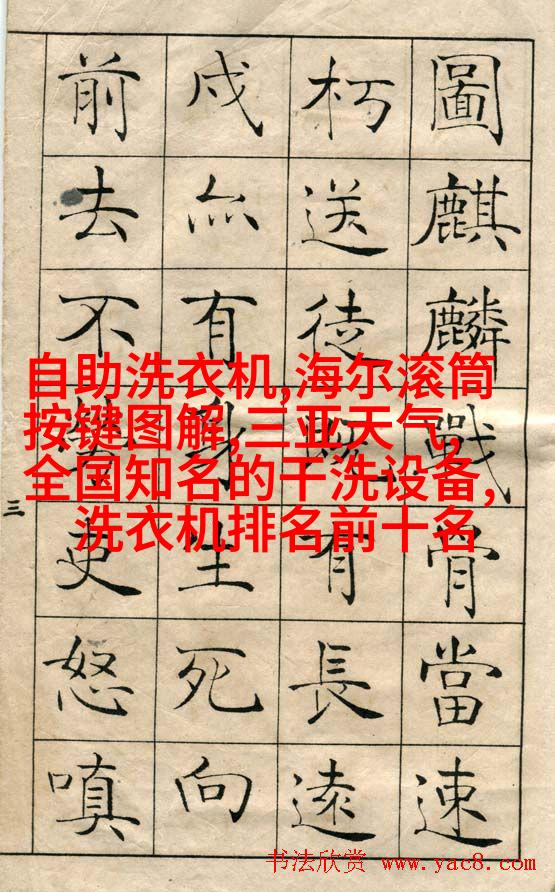 圖麒麟戰骨當速
朽送徒既有長遠
戍亦有身生死向
前去不勞吏怒嗔
三
自助洗衣机,海尔滚筒
按键图解,三亚天气,
全国知名的干洗设备,
洗衣机排名前十名
书法欣赏 www.yac8.com